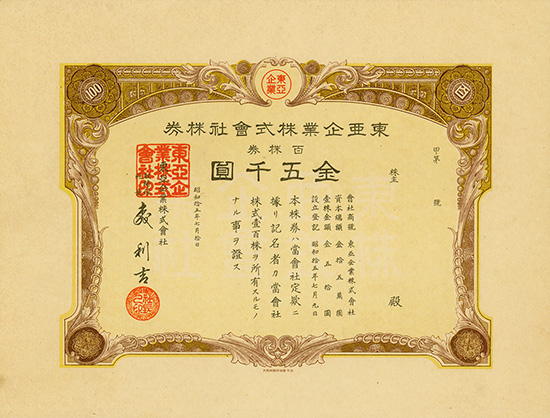 東亞
企業
100
100
東亞企業株式會社株券
百株券
金五千圓
甲第 號
株主 殿
會社商號 東亞企業株式會社
資本總額 金拾五萬圓
壹株金額 金五拾圓
設立登記 昭和拾五年七月九日
本株券ハ當會社定欵ニ
據リ記名者カ當會社
株式壹百株ヲ所有スルモノ
ナル事ヲ證ス
昭和拾五年七月拾日
東亞企業株式會社
東亞企
業株式
會社
利吉
100
100